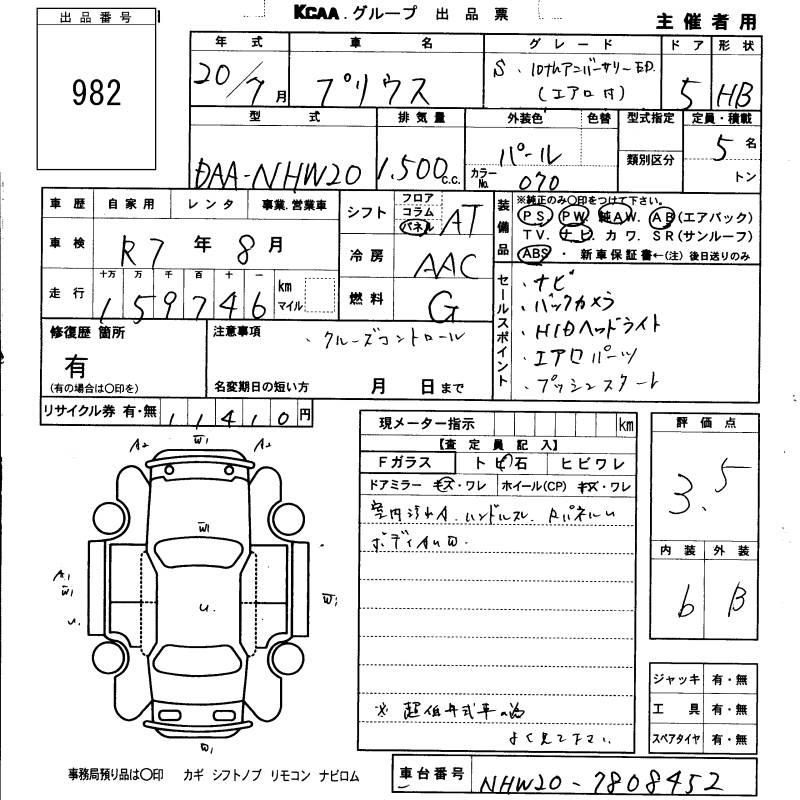 KCAA.グループ 出品票
主催者用
出品番号
982
年式 車名 グレード ドア 形状
20/7月 プリウス S.10thアニバーサリーED. (エアロ付) 5 HB
型式 排気量 外装色 色替 型式指定 定員・積載
DAA-NHW20 1.500c.c. パール 類別区分 5名
カラーNo. 070 トン
車歴 自家用 レンタ 事業.営業車
車検 R7年8月
走行 十万 万 千 百 十 一
159746 km マイル
シフト フロア コラム パネル AT
冷房 AAC
燃料 G
装備品 ※純正のみ〇印をつけて下さい。
PS. PW. 純AW. AB(エアバック)
TV. ナビ. カワ. SR(サンルーフ)
ABS・新車保証書←(注)後日送りのみ
セールスポイント
・ナビ
・バックカメラ
・HIDヘッドライト
・エアロパーツ
・プッシュスタート
修復歴 箇所
有
(有の場合は〇印を)
注意事項
・クルーズコントロール
名変期日の短い方 月 日まで
リサイクル券 有・無 11410円
現メーター指示 km
【査定員記入】
Fガラス トビ石 ヒビワレ
ドアミラー キズ・ワレ ホイール(CP) キズ・ワレ
室内汚れA.ハンドルスレ.
よく見て下さい.
評価点
3.5
内装 外装
b B
ジャッキ 有・無
工具 有・無
スペアタイヤ 有・無
A2 W1 A2
W1
A1
W1
U.
U.
W1
事務局預り品は〇印 カギ シフトノブ リモコン ナビロム
車台番号 NHW20-7808452